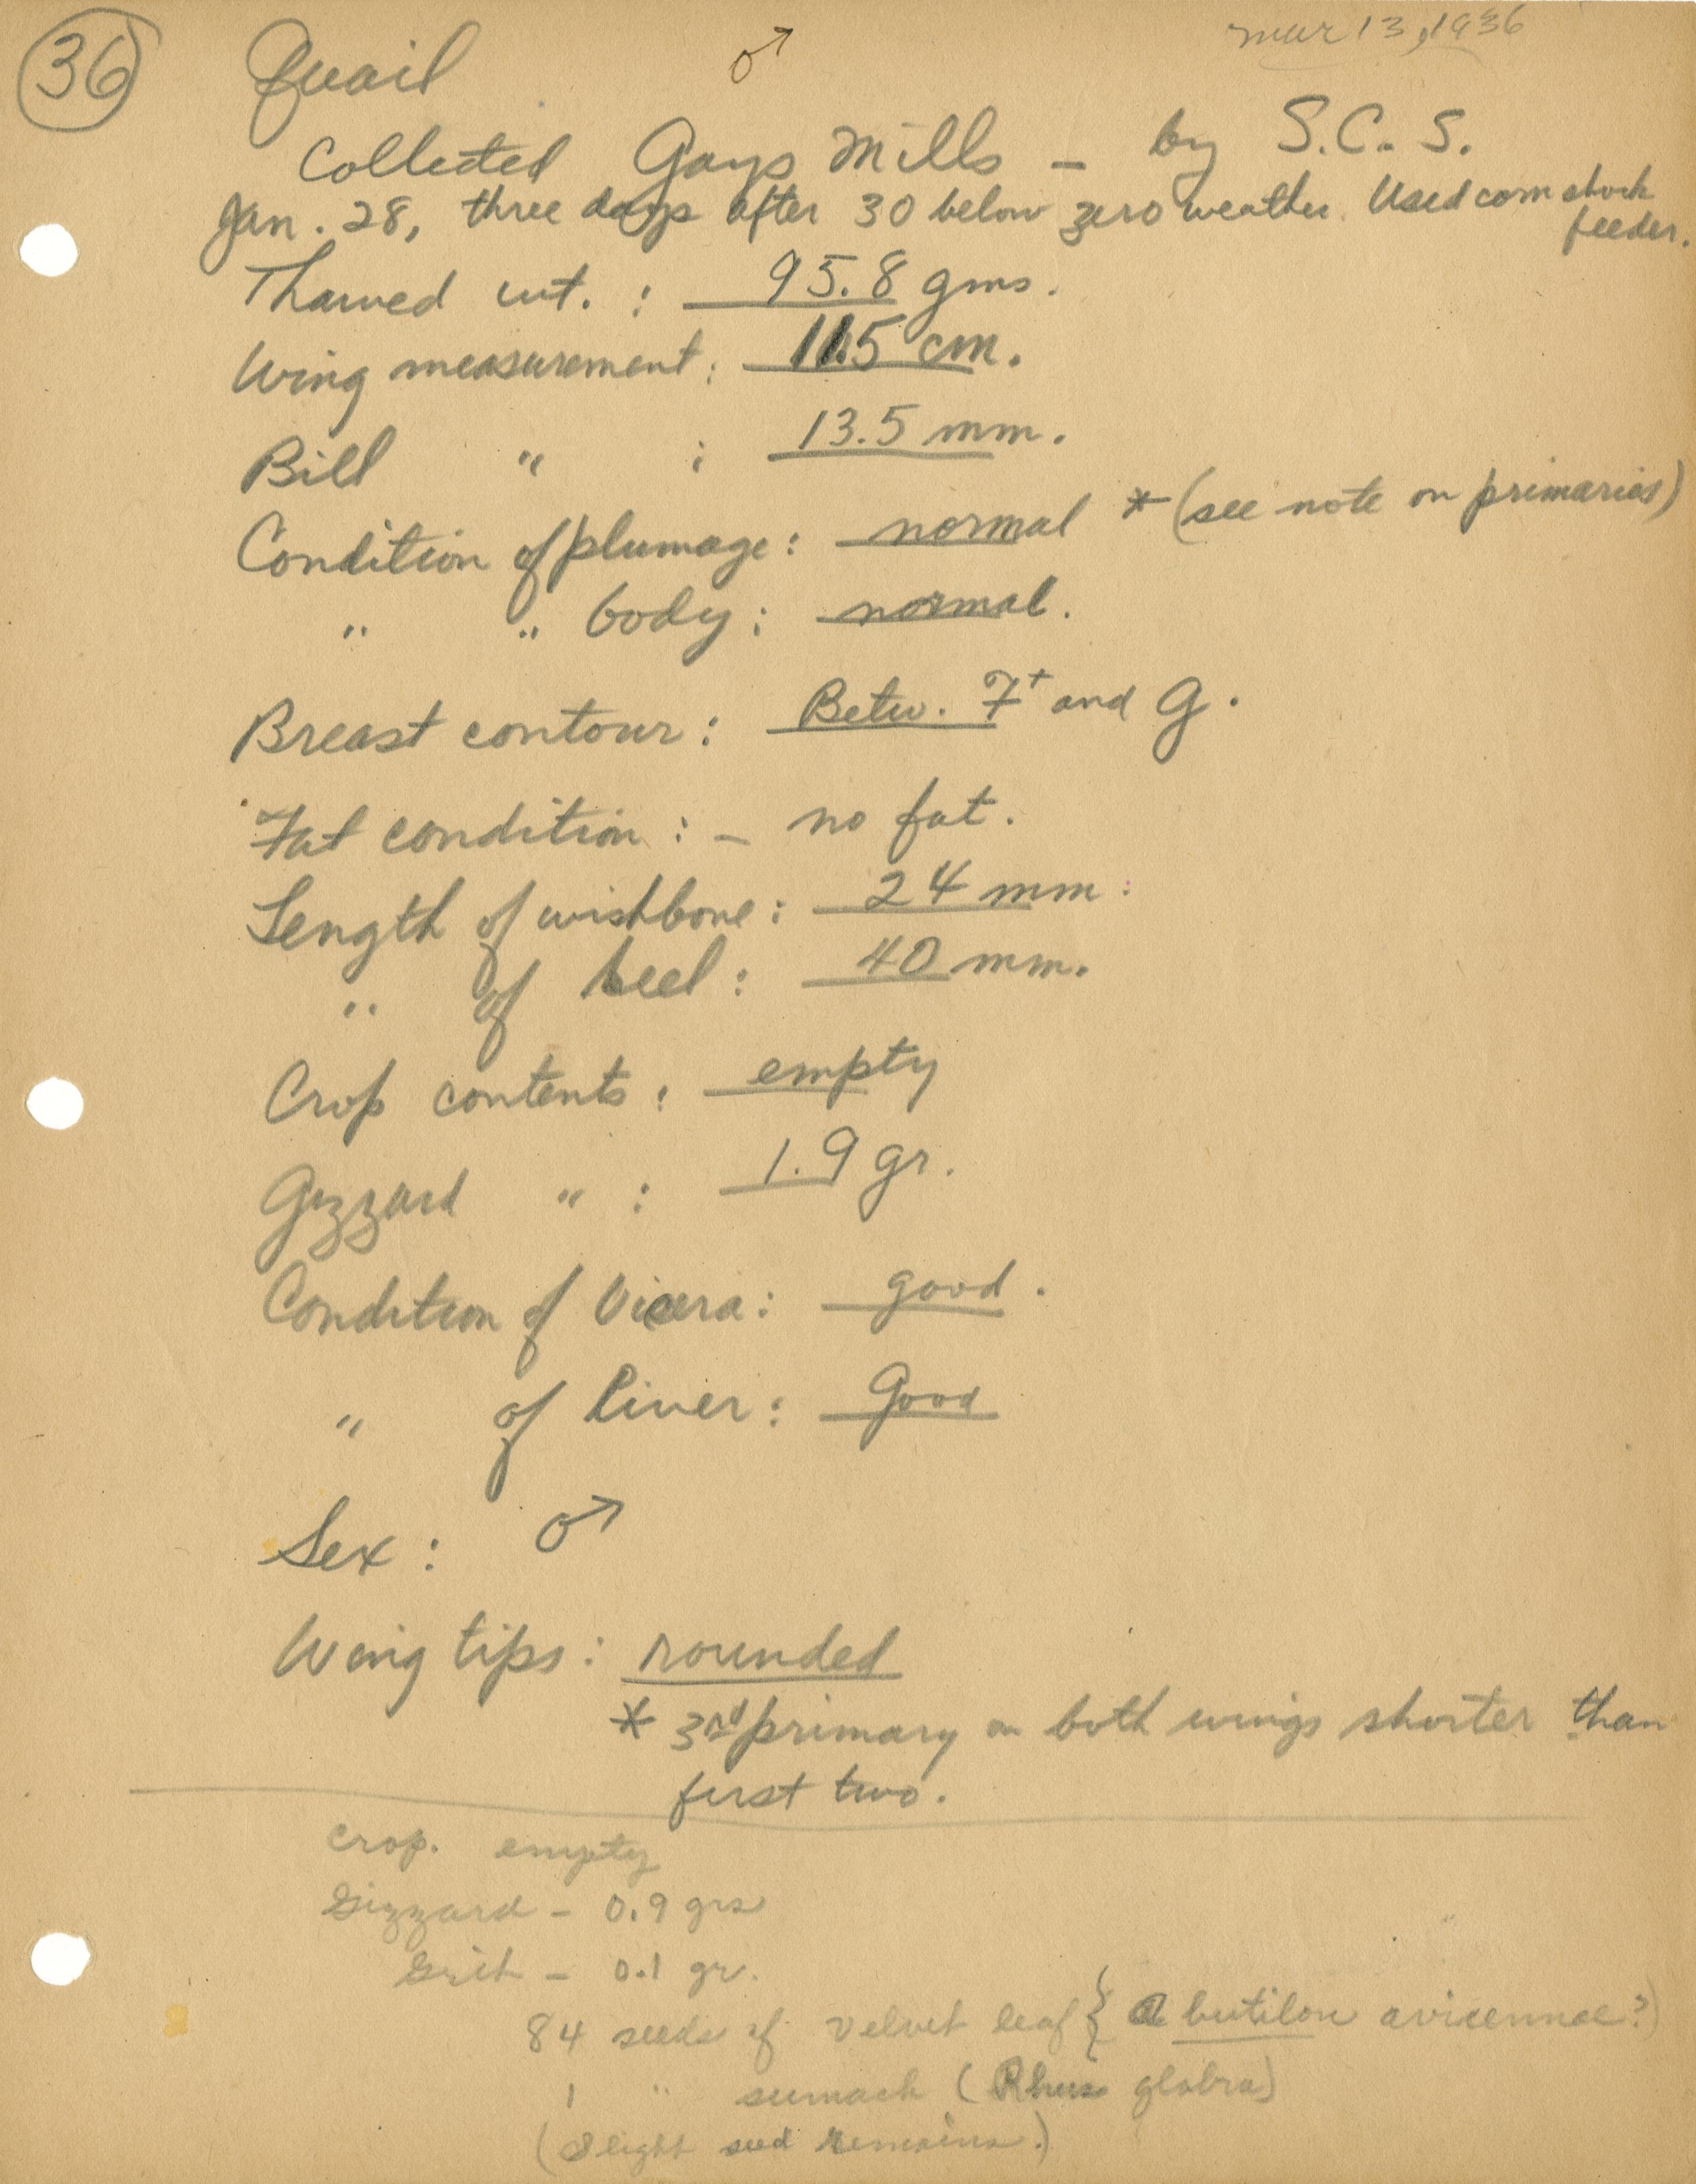 36 Quail ♂ Mar 13, 1936
Collected Gays Mills - by S.C.S.
Jan. 28, three days after 30 below zero weather. Used corn shock
feeder.
Thawed wt. : 95.8 gms.
Wing measurement: 11.5 cm.
Bill " : 13.5 mm.
Condition of plumage: normal * (see note on primaries)
" " body: normal.
Breast contour: Betw. F+ and G.
Fat condition: - no fat.
Length of wishbone: 24 mm.
" of keel: 40 mm.
Crop contents: empty
Gizzard " : 1.9 gr.
Condition of Vicera: good.
" of liver: Good
Sex: ♂
Wing tips: rounded
* 3rd primary on both wings shorter than
first two.
Crop. empty
Gizzard - 0.9 grs
Grit - 0.1 gr.
84 seeds of velvet leaf { Abutilon avicennae?)
1 " sumach (Rhus glabra)
(Slight seed remains.)